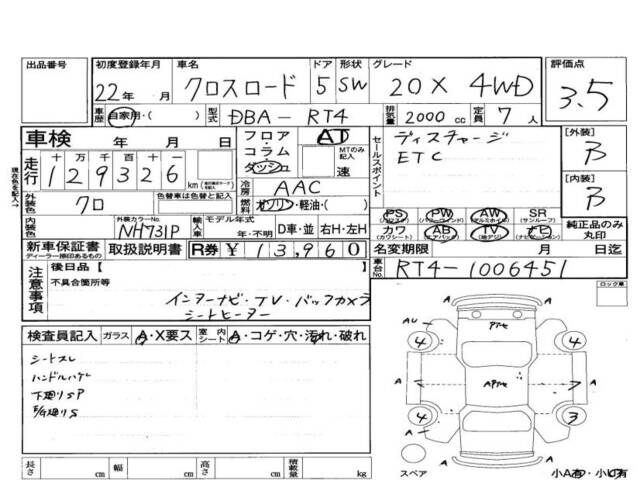 出品番号 初度登録年月 車名 ドア 形状 グレード 評価点
22年 月 クロスロード 5 SW 20X 4WD 3.5
車歴 自家用・( ) 型式 DBA-RT4 排気量 2000 cc 定員 7 人
車検 年 月 日 フロア AT セールスポイント ディスチャージ [外装]
走行 十 万 千 百 十 一 コラム MTのみ記入 ETC B
129326 km ダッシュ 速
冷房 AAC [内装]
外装色 クロ 色替車は色替と記入 燃料 ガソリン・軽油・( ) B
PS PW AW SR
(パワステ) (パワーウインド) (アルミホイル) (サンルーフ)
カワ AB TV ナビ 純正品のみ丸印
(カワシート) (エアバック) (地デジ) (ナビゲーション)
内装色 外装カラーNo. NH731P 輸入車 モデル年式 年・不明 D車・並 右H・左H
新車保証書 取扱説明書 R券 ¥13,960 名変期限 月 日迄
ディーラー捺印あるもの
車台No. RT4-1006451
現在色を記入
注意事項 後日品【 】 ロック車
不具合箇所等
インターナビ・TV・バックカメラ
シートヒーター
検査員記入 ガラス A・X要ス 室内シート A・コゲ・穴・汚れ・破れ
シートスレ
ハンドルハゲ
下廻りSP
4 4 4 3
A A A A A A
スペア 小A有・小U有
長さ cm 幅 cm 高さ cm 積載量 kg